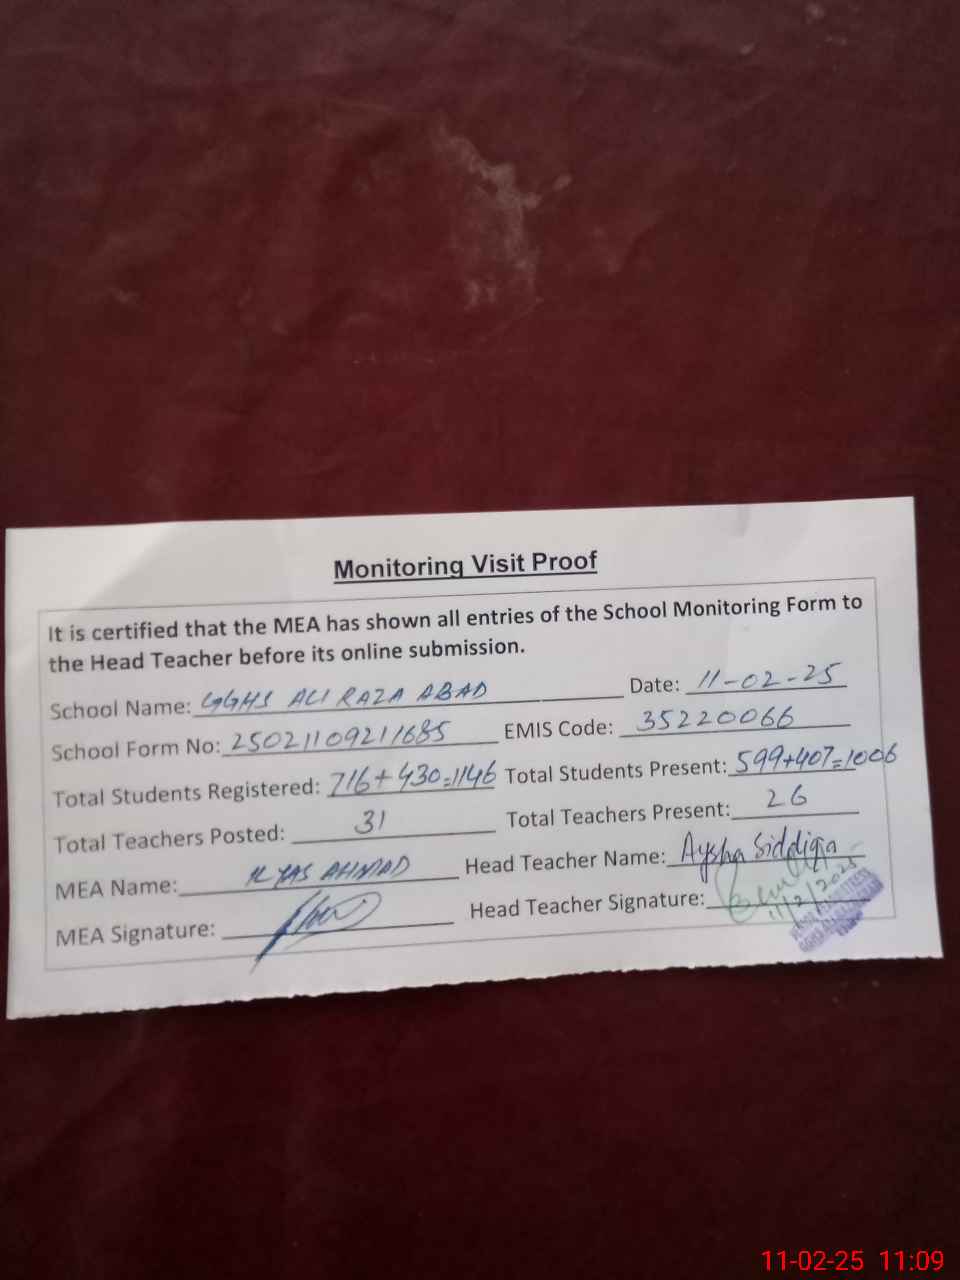 Monitoring Visit Proof
It is certified that the MEA has shown all entries of the School Monitoring Form to
the Head Teacher before its online submission.
School Name: GGHS ALI RAZA ABAD Date: 11-02-25
School Form No: 25021109211685 EMIS Code: 35220066
Total Students Registered: 716+430=1146 Total Students Present: 599+407=1006
Total Teachers Posted: 31 Total Teachers Present: 26
MEA Name: ILYAS AHMAD Head Teacher Name: Aysha Siddiqa
MEA Signature: Head Teacher Signature:
11/2/2025
11-02-25 11:09